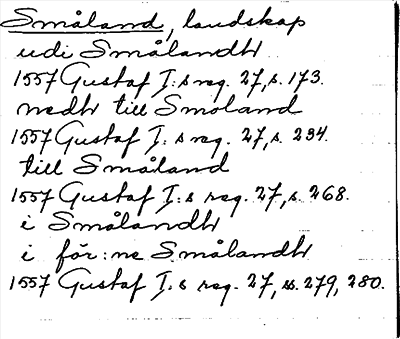 Småland, landskap
udi Smålandh
1557 Gustaf I:s reg. 27, s. 173.
nedh till Smoland
1557 Gustaf I:s reg. 27, s. 234.
till Småland
1557 Gustaf I:s reg. 27, s. 268.
i Smålandh
i för:ne Smålandh
1557 Gustaf I:s reg. 27, ss. 279, 280.